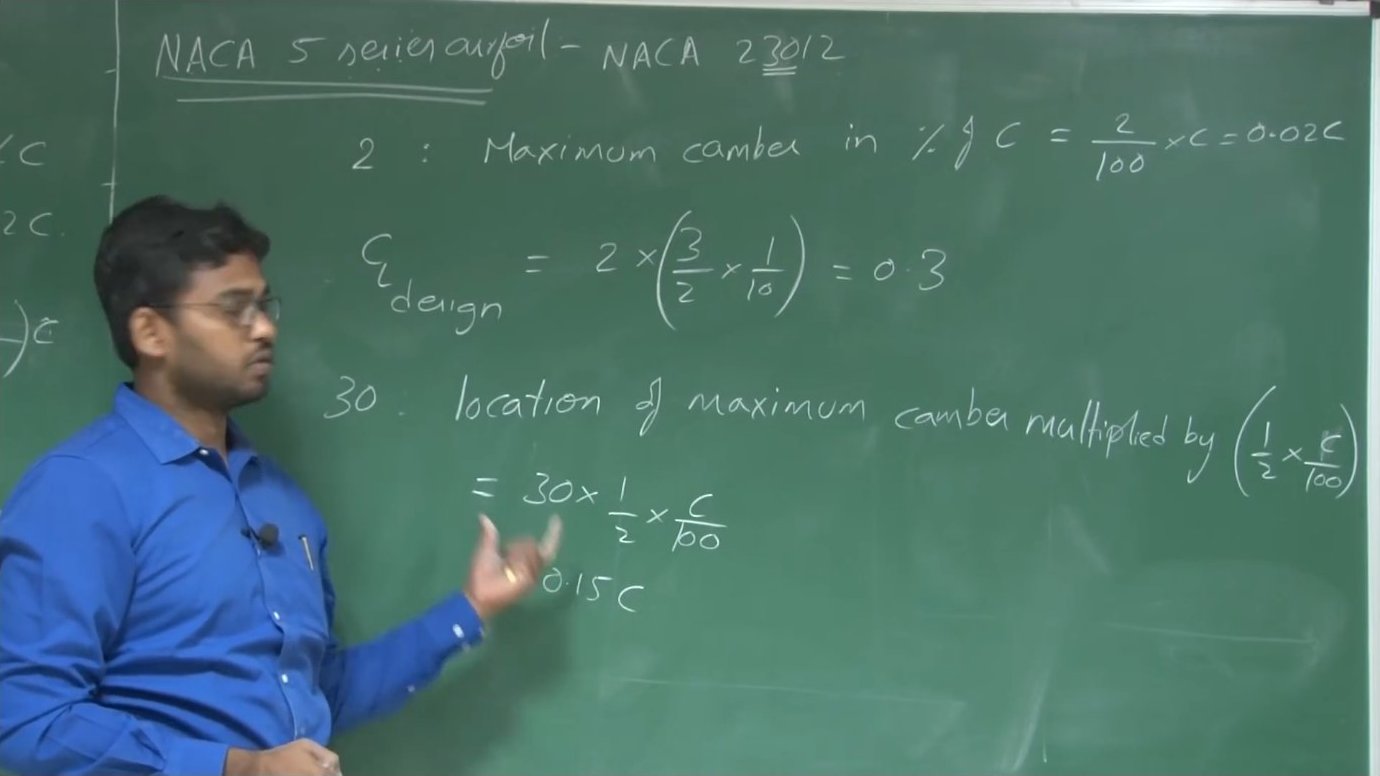 NACA 5 series airfoil - NACA 23012
% C
2 : Maximum camber in % of C = 2/100 × C = 0.02C
2C.
C_l design = 2 × (3/2 × 1/10) = 0.3
)C
30 : location of maximum camber multiplied by (1/2 × C/100)
= 30 × 1/2 × C/100
0.15C